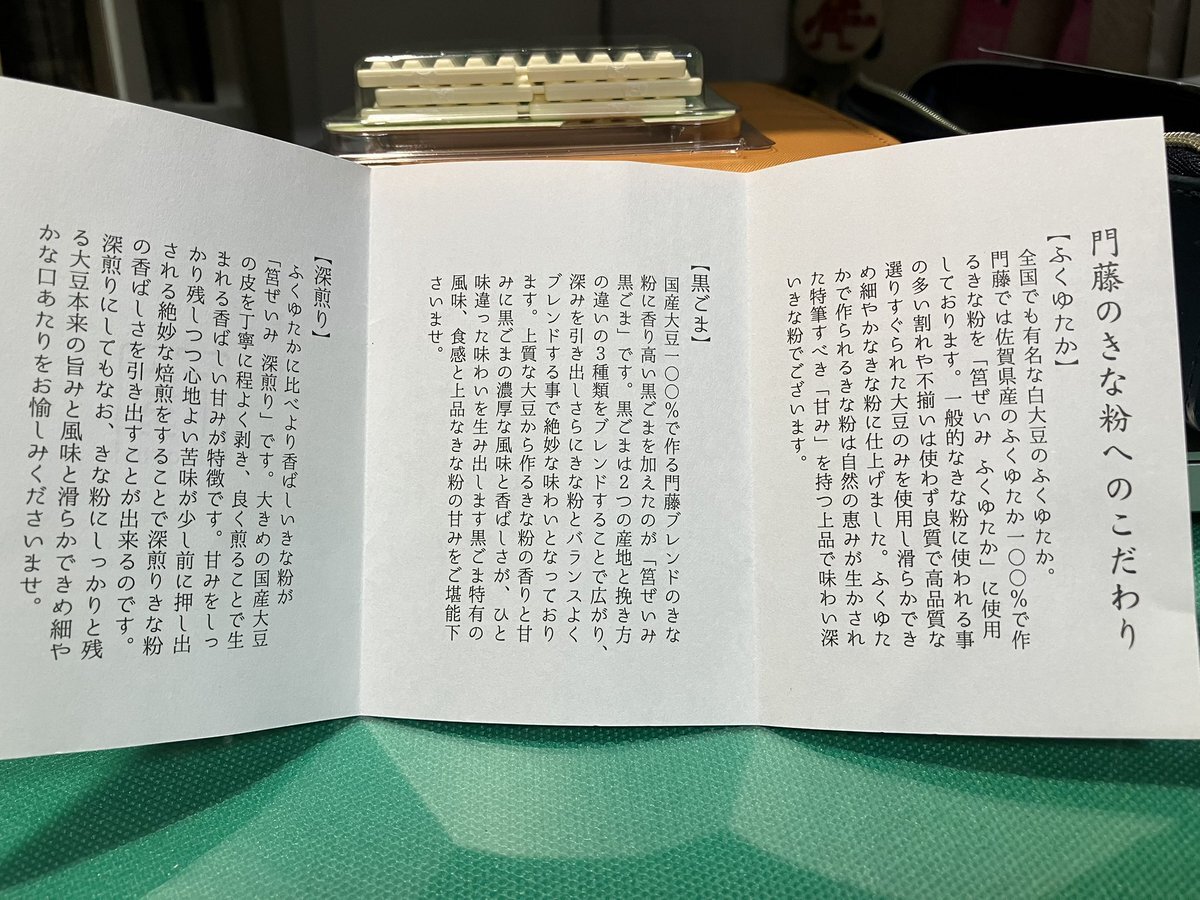 門藤のきな粉へのこだわり
【ふくゆたか】
全国でも有名な白大豆のふくゆたか。
門藤では佐賀県産のふくゆたか一〇〇％で作
るきな粉を「筥ぜいみ ふくゆたか」に使用
しております。一般的なきな粉に使われる事
の多い割れや不揃いは使わず良質で高品質な
選りすぐられた大豆のみを使用し滑らかでき
め細やかなきな粉に仕上げました。ふくゆた
かで作られるきな粉は自然の恵みが生かされ
た特筆すべき「甘み」を持つ上品で味わい深
いきな粉でございます。
【黒ごま】
国産大豆一〇〇％で作る門藤ブレンドのきな
粉に香り高い黒ごまを加えたのが「筥ぜいみ
黒ごま」です。黒ごまは２つの産地と挽き方
の違いの３種類をブレンドすることで広がり、
深みを引き出しさらにきな粉とバランスよく
ブレンドする事で絶妙な味わいとなっており
ます。上質な大豆から作るきな粉の香りと甘
みに黒ごまの濃厚な風味と香ばしさが、ひと
味違った味わいを生み出します黒ごま特有の
風味、食感と上品なきな粉の甘みをご堪能下
さいませ。
【深煎り】
ふくゆたかに比べより香ばしいきな粉が
「筥ぜいみ 深煎り」です。大きめの国産大豆
の皮を丁寧に程よく剥き、良く煎ることで生
まれる香ばしい甘みが特徴です。甘みをしっ
かり残しつつ心地よい苦味が少し前に押し出
される絶妙な焙煎をすることで深煎りきな粉
の香ばしさを引き出すことが出来るのです。
深煎りにしてもなお、きな粉にしっかりと残
る大豆本来の旨みと風味と滑らかできめ細や
かな口あたりをお愉しみくださいませ。